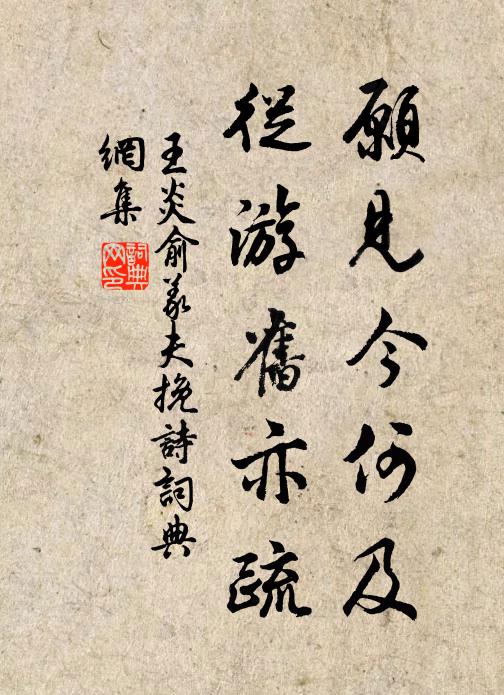 願見今何及
從游舊亦疏
王炎俞義夫挽詩詞典
網集
詞典
网印